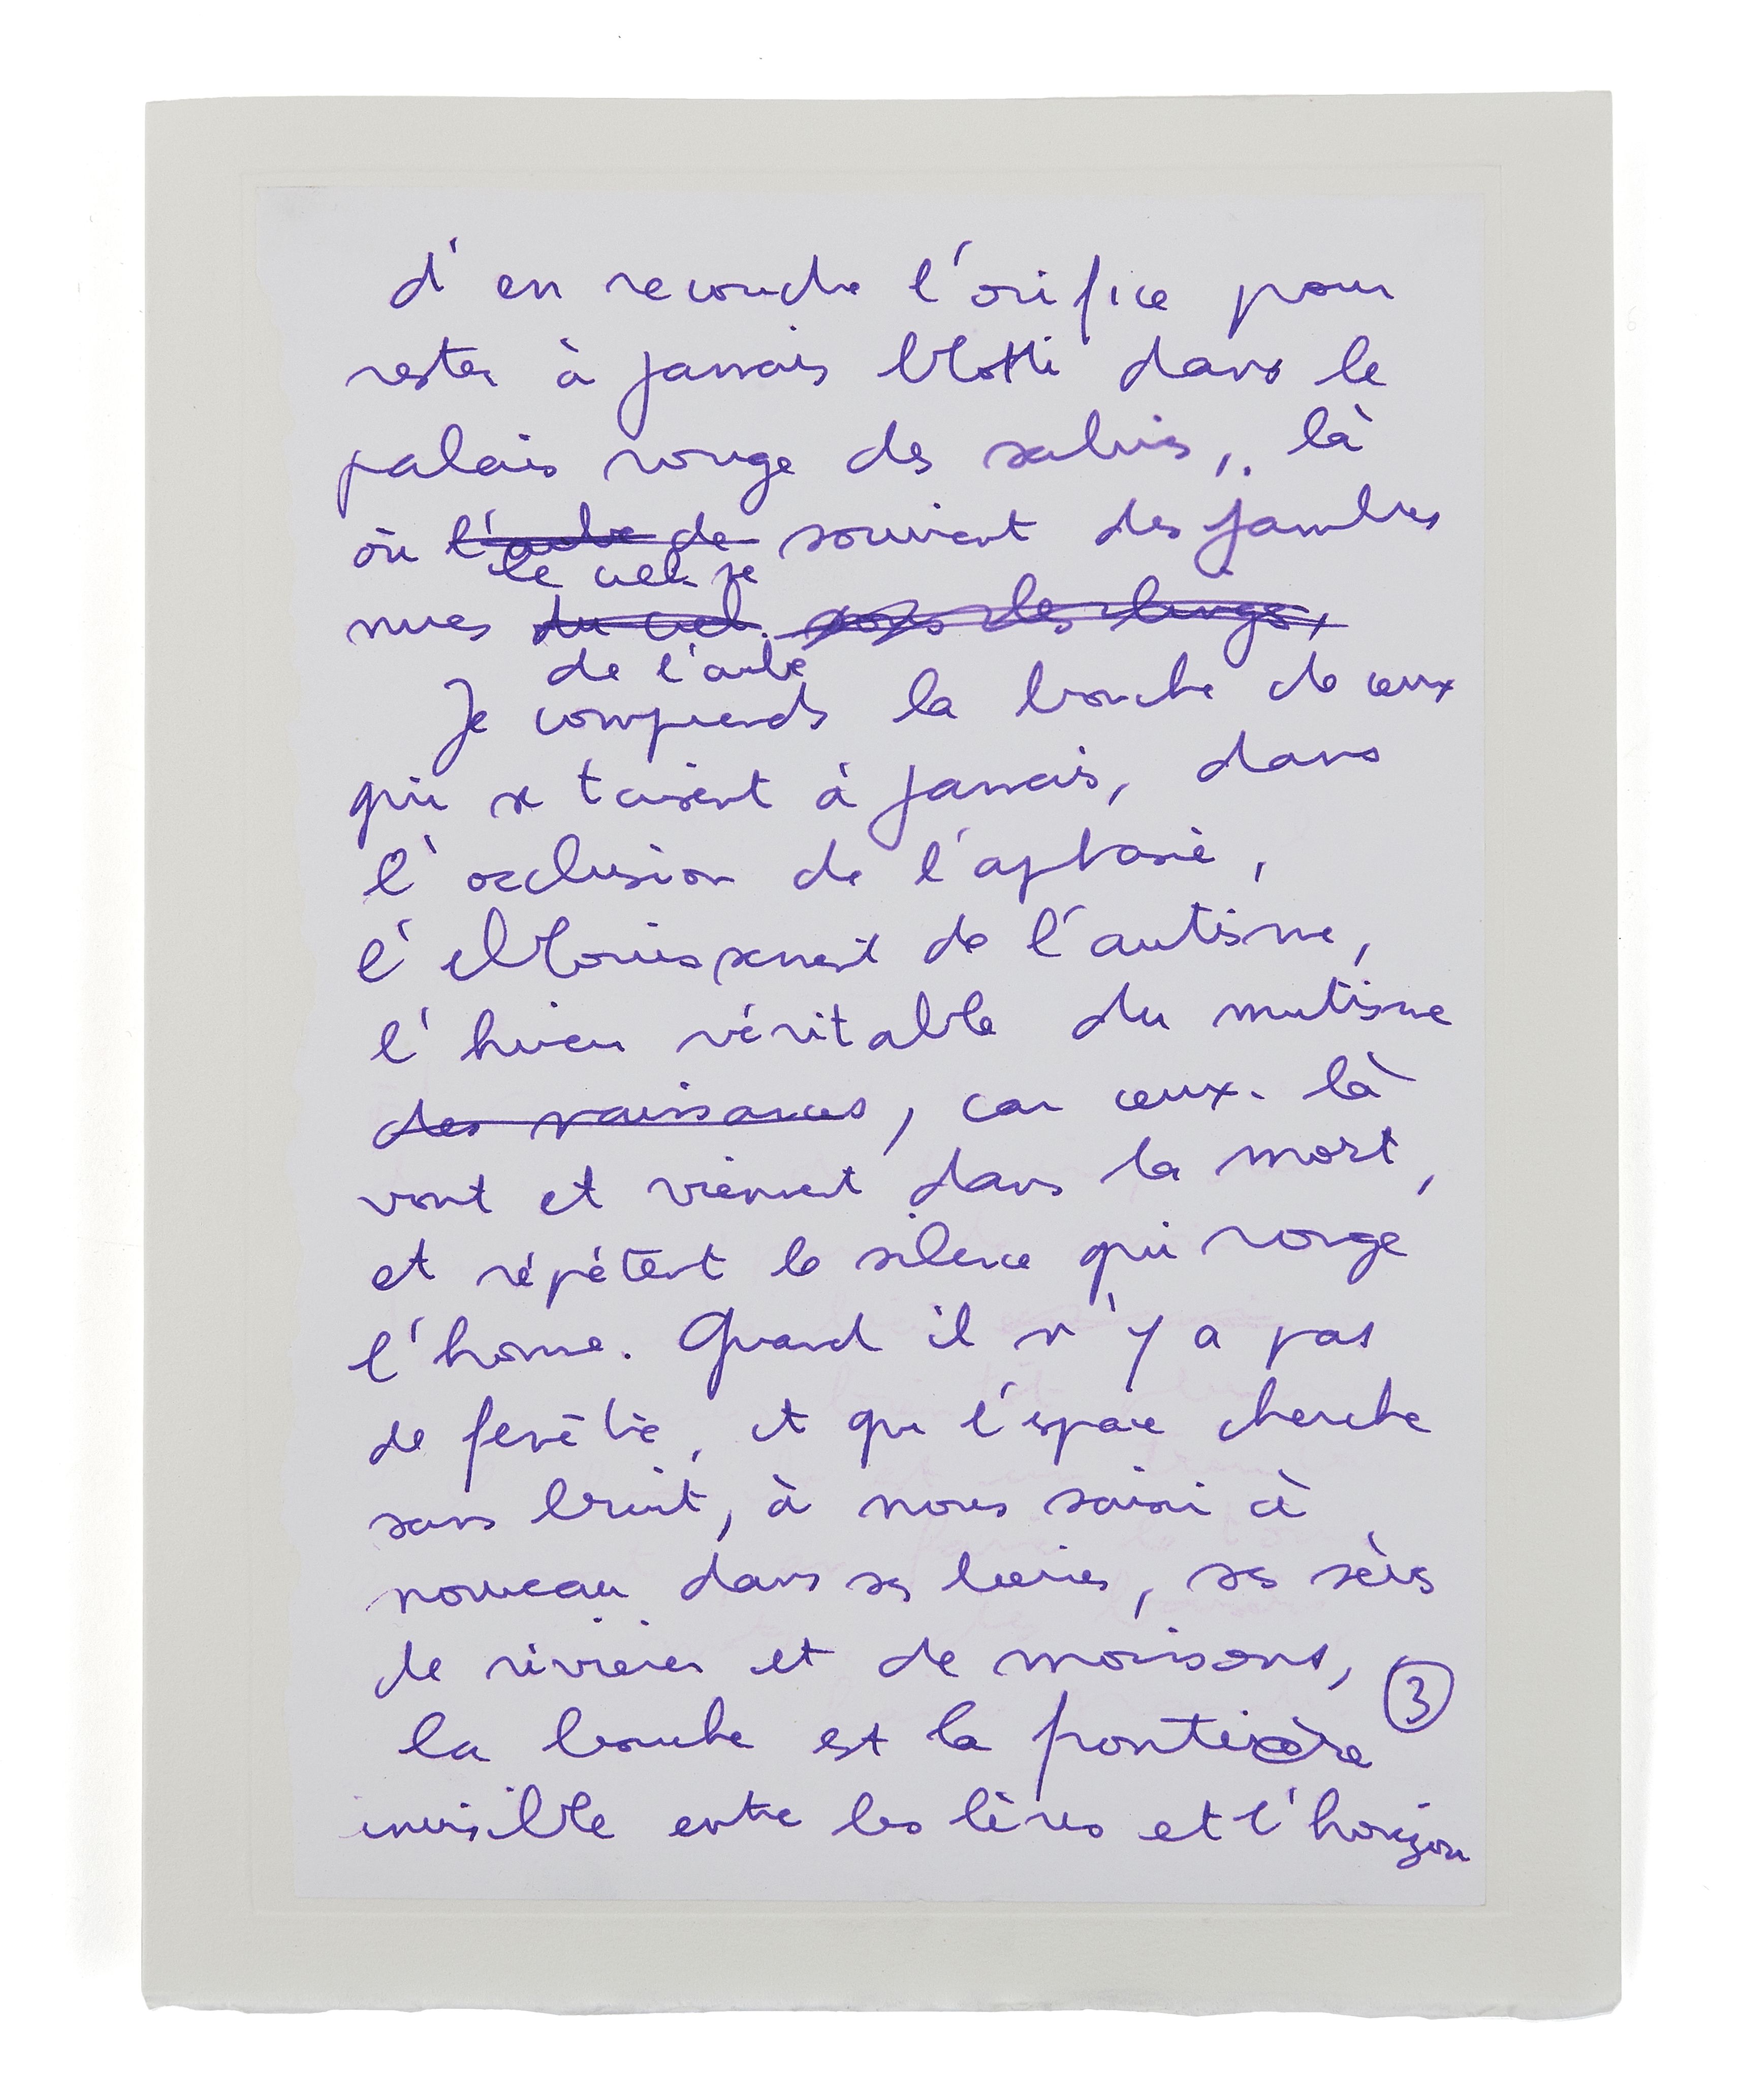 d'en recoudre l'orifice pour
rester à jamais blotti dans le
palais rouge des salives, là
où l'aube de souvient des jambes
le ciel se
nues du ciel sous les linges,
de l'aube
Je comprends la bouche de ceux
qui se taisent à jamais, dans
l'occlusion de l'aphasie,
l'éblouissement de l'autisme,
l'hiver véritable du mutisme
des naissances, car ceux-là
vont et viennent dans la mort,
et répètent le silence qui ronge
l'homme. Quand il n'y a pas
de fenêtre, et que l'espace cherche
sans bruit, à nous saisir à
nouveau dans ses lueurs, ses
de rivières et de moissons,
3
la bouche est la frontière
invisible entre les lèvres et l'horizon